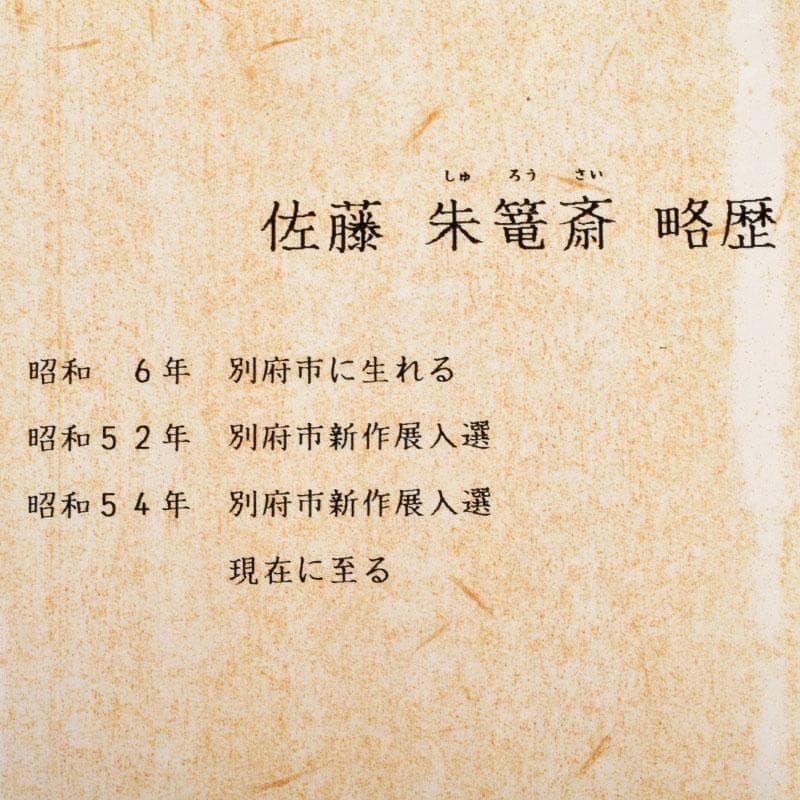 しゅ ろう さい
佐藤 朱篭斎 略歴
昭和 6年 別府市に生れる
昭和52年 別府市新作展入選
昭和54年 別府市新作展入選
現在に至る